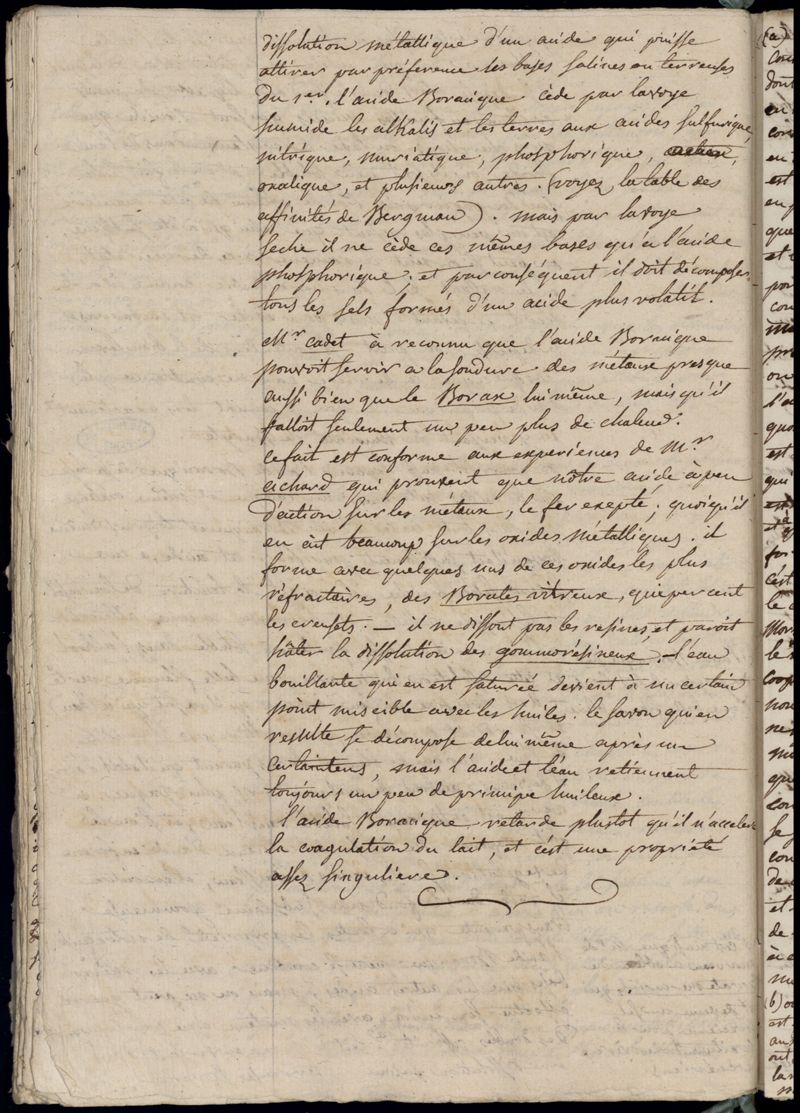 dissolution métallique d'un acide qui puisse
attirer par préference les bases salines ou terreuses
du 1er. l'acide Boracique cède par la voye
humide les alkalis et les terres aux acides sulfurique,
nitrique, muriatique, phosphorique,
oxalique, et plusieurs autres. (voyez la table des
affinités de Bergman). mais par la voye
seche il ne cède ces mêmes bases qu'a l'acide
phosphorique; et par conséquent il doit décomposer
tous les sels formés d'un acide plus volatil.
Mr cadet à reconnu que l'acide Boracique
pouvoit servir a la soudure des métaux presque
aussi bien que le Borax lui même, mais qu'il
falloit seulement un peu plus de chaleur.
ce fait est conforme aux experiences de Mr
achard qui prouvent que nôtre acide à peu
d'action sur les métaux, le fer exepté; quoiqu'il
en ait beaucoup sur les oxides métalliques. il
forme avec quelques uns de ces oxides les plus
réfractaires, des Borates vitreux, qui percent
les creusets. — il ne dissout pas les resines et paroit
hâter la dissolution des gommorésineux. — l'eau
bouillante qui en est saturée devient à un certain
point miscible avec les huiles. le savon qui en
resulte se décompose de lui même après un
certaintems, mais l'acide et l'eau retiennent
toujours un peu de principe huileux.
l'acide Boracique retarde plustot qu'il n'accelere
la coagulation du lait, et c'est une propriété
assez singuliere.